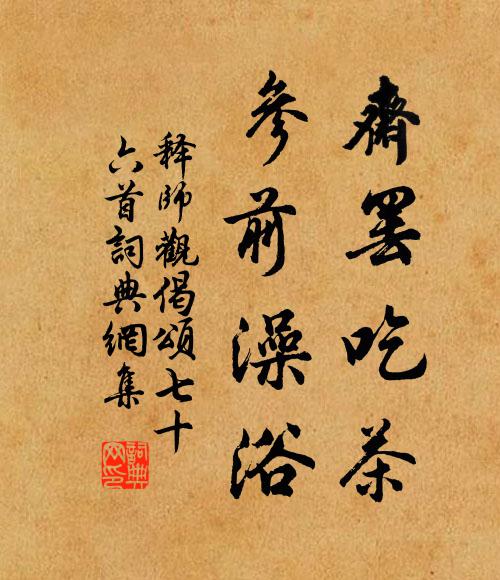 齋罷吃茶
參前澡浴
释師觀偈頌七十
六首詞典網集
詞典網印